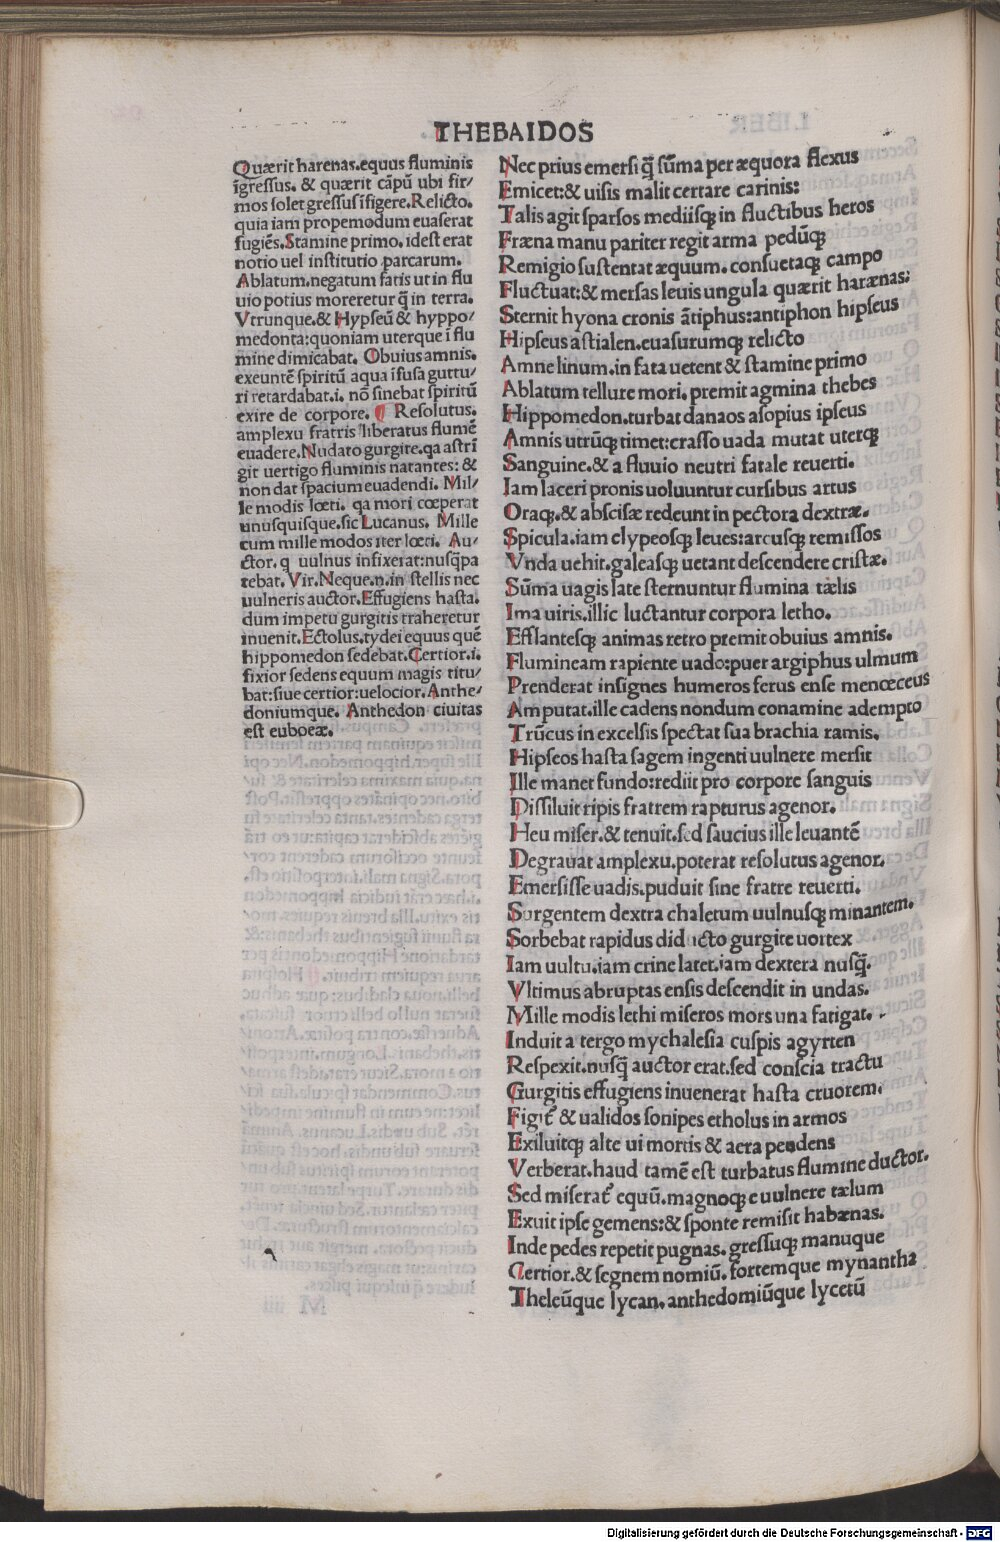 THEBAIDOS
Quærit harenas.equus fluminis
īgressus. & quærit cāpū ubi fir/
mos solet gressus ifigere.Relicto.
quia iam propemodum euaserat
fugiēs.Stamine primo.idest erat
notio uel institutio parcarum.
Ablatum.negatum fatis ut in flu
uio potius moreretur q̄ in terra.
Vtrunque.& Hypseū & hyppo/
medonta:quoniam uterque i flu
mine dimicabat. Obuius amnis.
exeuntē spiritū aqua ifusa guttu/
ri retardabat.i. nō sinebat spiritū
exire de corpore. ¶ Resolutus.
amplexu fratris liberatus flumē
euadere.Nudato gurgite.qa astrī
git uertigo fluminis natantes: &
non dat spacium euadendi. Mil/
le modis lœti. qa mori cœperat
unusquisque.sic Lucanus. Mille
cum mille modos iter lœti. Au/
ctor. q uulnus infixerat:nusq̄pa
rebat. Vir.Neque.n.in stellis nec
uulneris auctor.Effugiens hasta.
dum impetu gurgitis traheretur
inuenit.Ectolus.tydei equus quē
hippomedon sedebat.Certior.i.
fixior sedens equum magis titu/
bat:siue certior:uelocior. Anthe/
doniumque. Anthedon ciuitas
est euboeæ.
Nec prius emersi q̄ sūma per æquora flexus
Emicet:& uisis malit certare carinis:
Talis agit sparsos mediisq; in fluctibus heros
Fræna manu pariter regit arma pedūq;
Remigio sustentat æquum. consuetaq; campo
Fluctuat:& mersas leuis ungula quærit haræenas:
Sternit hyona cronis ātiphus:antiphon hipseus
Hipseus astialen.euasurumq; relicto
Amne linum.in fata uetent & stamine primo
Ablatum tellure mori. premit agmina thebes
Hippomedon.turbat danaos asopius ipseus
Amnis utrūq; timet:crasso uada mutat uterq;
Sanguine.& a fluuio neutri fatale reuerti.
Iam laceri pronis uoluuntur cursibus artus
Oraq;.& abscisæ redeunt in pectora dextræ.
Spicula.iam clypeosq; leues:arcusq; remissos
Vnda uehit.galeasq; uetant descendere cristæ.
Sūma uagis late sternuntur flumina tælis
Ima uiris.illic luctantur corpora letho.
Efflantesq; animas retro premit obuius amnis.
Flumineam rapiente uado:puer argiphus ulmum
Prenderat insignes humeros ferus ense menœceus
Amputat.ille cadens nondum conamine adempto
Trūcus in excelsis spectat sua brachia ramis.
Hipseos hasta sagem ingenti uulnere mersit
Ille manet fundo:rediit pro corpore sanguis
Dissiluit ripis fratrem rapturus agenor.
Heu miser.& tenuit.sed saucius ille leuantē
Degrauat amplexu.poterat resolutus agenor.
Emersisse uadis.puduit sine fratre reuerti.
Surgentem dextra chaletum uulnusq; minantem.
Sorbebat rapidus diducto gurgite uortex
Iam uultu.iam crine latet.iam dextera nusq̄.
Vltimus abruptas ensis descendit in undas.
Mille modis lethi miseros mors una fatigat.
Induit a tergo mychalesia cuspis agyrten
Respexit.nusq̄ auctor erat.sed conscia tractu
Gurgitis effugiens inuenerat hasta cruorem.
Figit̄ & ualidos sonipes etholus in armos
Exiluitq; alte ui mortis & aera pendens
Verberat.haud tamē est turbatus flumine ductor.
Sed miserat̄ equū.magnoq; e uulnere tælum
Exuit ipse gemens:& sponte remisit habænas.
Inde pedes repetit pugnas. gressuq; manuque
Certior.& segnem nomiū. fortemque mynantha
Theleūque lycan.anthedomiūque lycetū
Digitalisierung gefördert durch die Deutsche Forschungsgemeinschaft - DFG